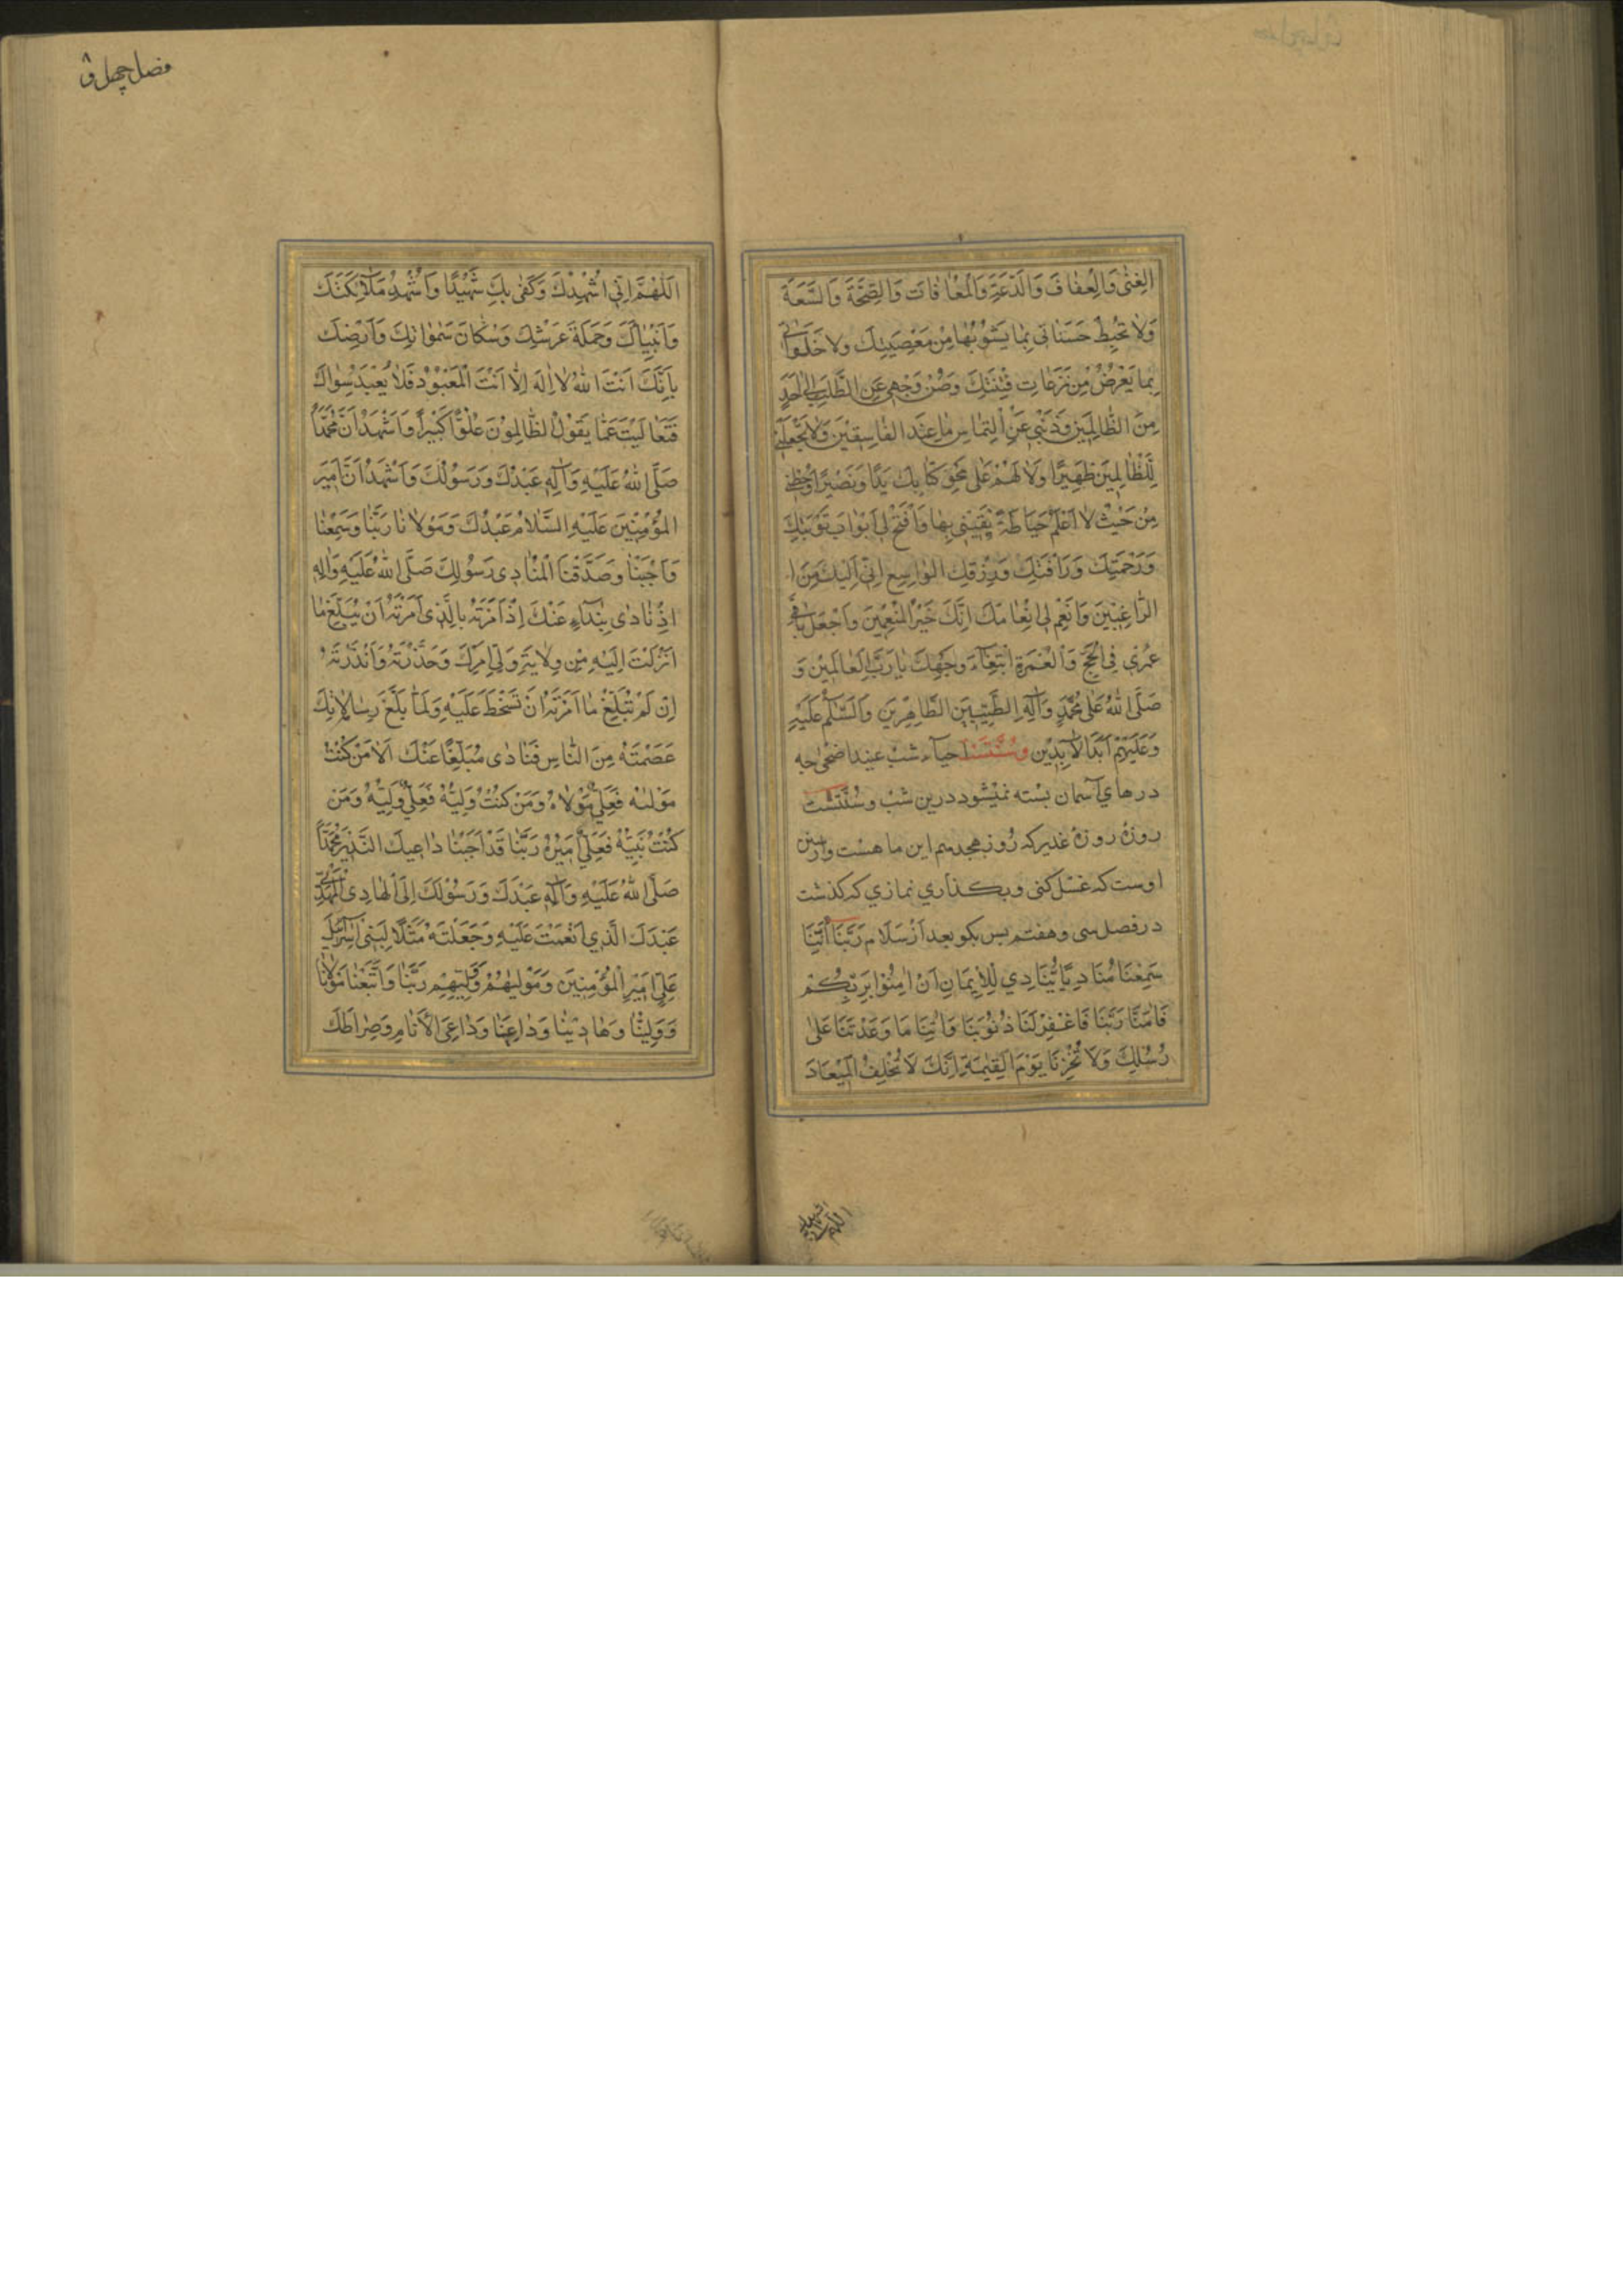 الْغِنٰى وَالْعِفٰافَ وَالدَّعَةَ وَالْمُعٰافٰاتَ وَالصِّحَّةَ وَالسَّعَةَ
وَلاٰ تُحْبِطْ حَسَنٰاتى بِمٰا يَشُوْبُهٰا مِنْ مَعْصِيَتِكَ وَلا خَلَوٰاتى
بِمٰا يَعْرِضُ مِنْ نَزَعٰاتِ فِتْنَتِكَ وَصُنْ وَجْهى عَنِ الطَّلَبِ اِلٰى اَحَدٍ
مِنَ الظّٰالِمِيْنَ وَذُبَّنى عَنِ الْتِمٰاسِ مٰا عِنْدَ الْفٰاسِقيْنَ وَلاٰ تَجْعَلْنى
لِلظّٰالِمينَ ظَهيْرًا وَلاٰ لَهُمْ عَلٰى مَحْوِ كِتٰابِكَ يَدًا وَنَصيْرًا وَحُطْنى
مِنْ حَيْثُ لاٰ اَعْلَمُ حِيٰاطَةً تَقينى بِهٰا وَافْتَحْ لى اَبْوٰابَ تَوْبَتِكَ
وَرَحْمَتِكَ وَرَاْفَتِكَ وَرِزْقِكَ الْوٰاسِعِ اِنّى اِلَيْكَ مِنَ ا
الرّٰاغِبينَ وَاَتْمِمْ لى اِنْعٰامَكَ اِنَّكَ خَيْرُ الْمُنْعِمينَ وَاجْعَلْ بٰاقى
عُمْرى فِى الْحَجِّ وَالْعُمْرَةِ ابْتِغٰاءَ وَجْهِكَ يٰا رَبَّ الْعٰالَمينَ وَ
صَلَّى اللّٰهُ عَلٰى مُحَمَّدٍ وَآلِهِ الطَّيِّبينَ الطّٰاهِرينَ وَالسَّلٰمُ عَلَيْهِ
وَعَلَيْهِمْ اَبَدَ الْاٰبِدينَ وسُنّتست احيآء شب عيد اضحى چه
درهاي آسمان بسته نميشود درين شب وسُنّتست
روزهٔ روزهٔ غدير كه روز هجدهم اين ماهست وازسنن
اوست كه غسل كنى وبگذاري نمازي كه كذشت
در فصل سى وهفتم پس بكو بعد از سلام رَبَّنَا اِنَّنَا
سَمِعْنَا مُنَادِيًا يُّنَادِي لِلْاِيْمَانِ اَنْ اٰمِنُوْا بِرَبِّكُمْ
فَاٰمَنَّا رَبَّنَا فَاغْفِرْ لَنَا ذُنُوْبَنَا وَاٰتِنَا مَا وَعَدْتَنَا عَلٰى
رُسُلِكَ وَلَا تُخْزِنَا يَوْمَ الْقِيٰمَةِ اِنَّكَ لَا تُخْلِفُ الْمِيْعَادَ
فصل چهل و۸
اَللّٰهُمَّ اِنّى اُشْهِدُكَ وَكَفٰى بِكَ شَهيْدًا وَاُشْهِدُ مَلاٰئِكَتَكَ
وَاَنْبِيٰاكَ وَحَمَلَةَ عَرْشِكَ وَسُكّٰانَ سَمٰوٰاتِكَ وَاَرْضِكَ
بِاَنَّكَ اَنْتَ اللّٰهُ لاٰ اِلٰهَ اِلاّٰ اَنْتَ الْمَعْبُوْدُ فَلاٰ يُعْبَدُ سِوٰاكَ
فَتَعٰالَيْتَ عَمّٰا يَقُوْلُ الظّٰالِمُوْنَ عُلُوًّا كَبيْراً وَاَشْهَدُ اَنَّ مُحَمَّدًا
صَلَّى اللّٰهُ عَلَيْهِ وَآلِهِ عَبْدُكَ وَرَسُوْلُكَ وَاَشْهَدُ اَنَّ اَميْرَ
الْمُؤْمِنينَ عَلَيْهِ السَّلاٰمُ عَبْدُكَ وَمَوْلاٰنٰا رَبَّنٰا وَسَمِعْنٰا
وَاَجَبْنٰا وَصَدَّقْنَا الْمُنٰادِى رَسُوْلَكَ صَلَّى اللّٰهُ عَلَيْهِ وَاٰلِهِ
اِذْ نٰادٰى بِنِدٰآءٍ عَنْكَ اِذْ اَمَرْتَهُ بِالَّذى اَمَرْتَهُ اَنْ يُبَلِّغَ مٰا
اَنْزَلْتَ اِلَيْهِ مِنْ وِلاٰيَةِ وَلِىِّ اَمْرِكَ وَحَذَّرْتَهُ وَاَنْذَرْتَهُ
اِنْ لَمْ يُبَلِّغْ مٰا اَمَرْتَهُ اَنْ تَسْخَطَ عَلَيْهِ وَلَمّٰا بَلَّغَ رِسٰالاٰتِكَ
عَصَمْتَهُ مِنَ النّٰاسِ فَنٰادٰى مُبَلِّغًا عَنْكَ اَلاٰ مَنْ كُنْتُ
مَوْلٰىهُ فَعَلِىٌّ مَوْلاٰهُ وَمَنْ كُنْتُ وَلِيَّهُ فَعَلِىٌّ وَلِيُّهُ وَمَنْ
كُنْتُ نَبِيَّهُ فَعَلِىٌّ اَميْرُهُ رَبَّنٰا قَدْ اَجَبْنٰا دٰاعِيَكَ النَّذيرَ مُحَمَّدًا
صَلَّى اللّٰهُ عَلَيْهِ وَآلِهِ عَبْدَكَ وَرَسُوْلَكَ اِلَى الْهٰادِى الْمَهْدِىِّ
عَبْدِكَ الَّذي اَنْعَمْتَ عَلَيْهِ وَجَعَلْتَهُ مَثَلًا لِبَنى اِسْرآئيلَ
عَلِىٍّ اَميرِ الْمُؤْمِنينَ وَمَوْلٰيهُمْ وَوَلِيِّهِمْ رَبَّنٰا وَاتَّبَعْنٰا مَوْلاٰنٰا
وَوَلِيَّنٰا وَهٰادِيَنٰا وَدٰاعِيَنٰا وَدٰاعِىَ الْاَنٰامِ وَصِرٰاطَكَ